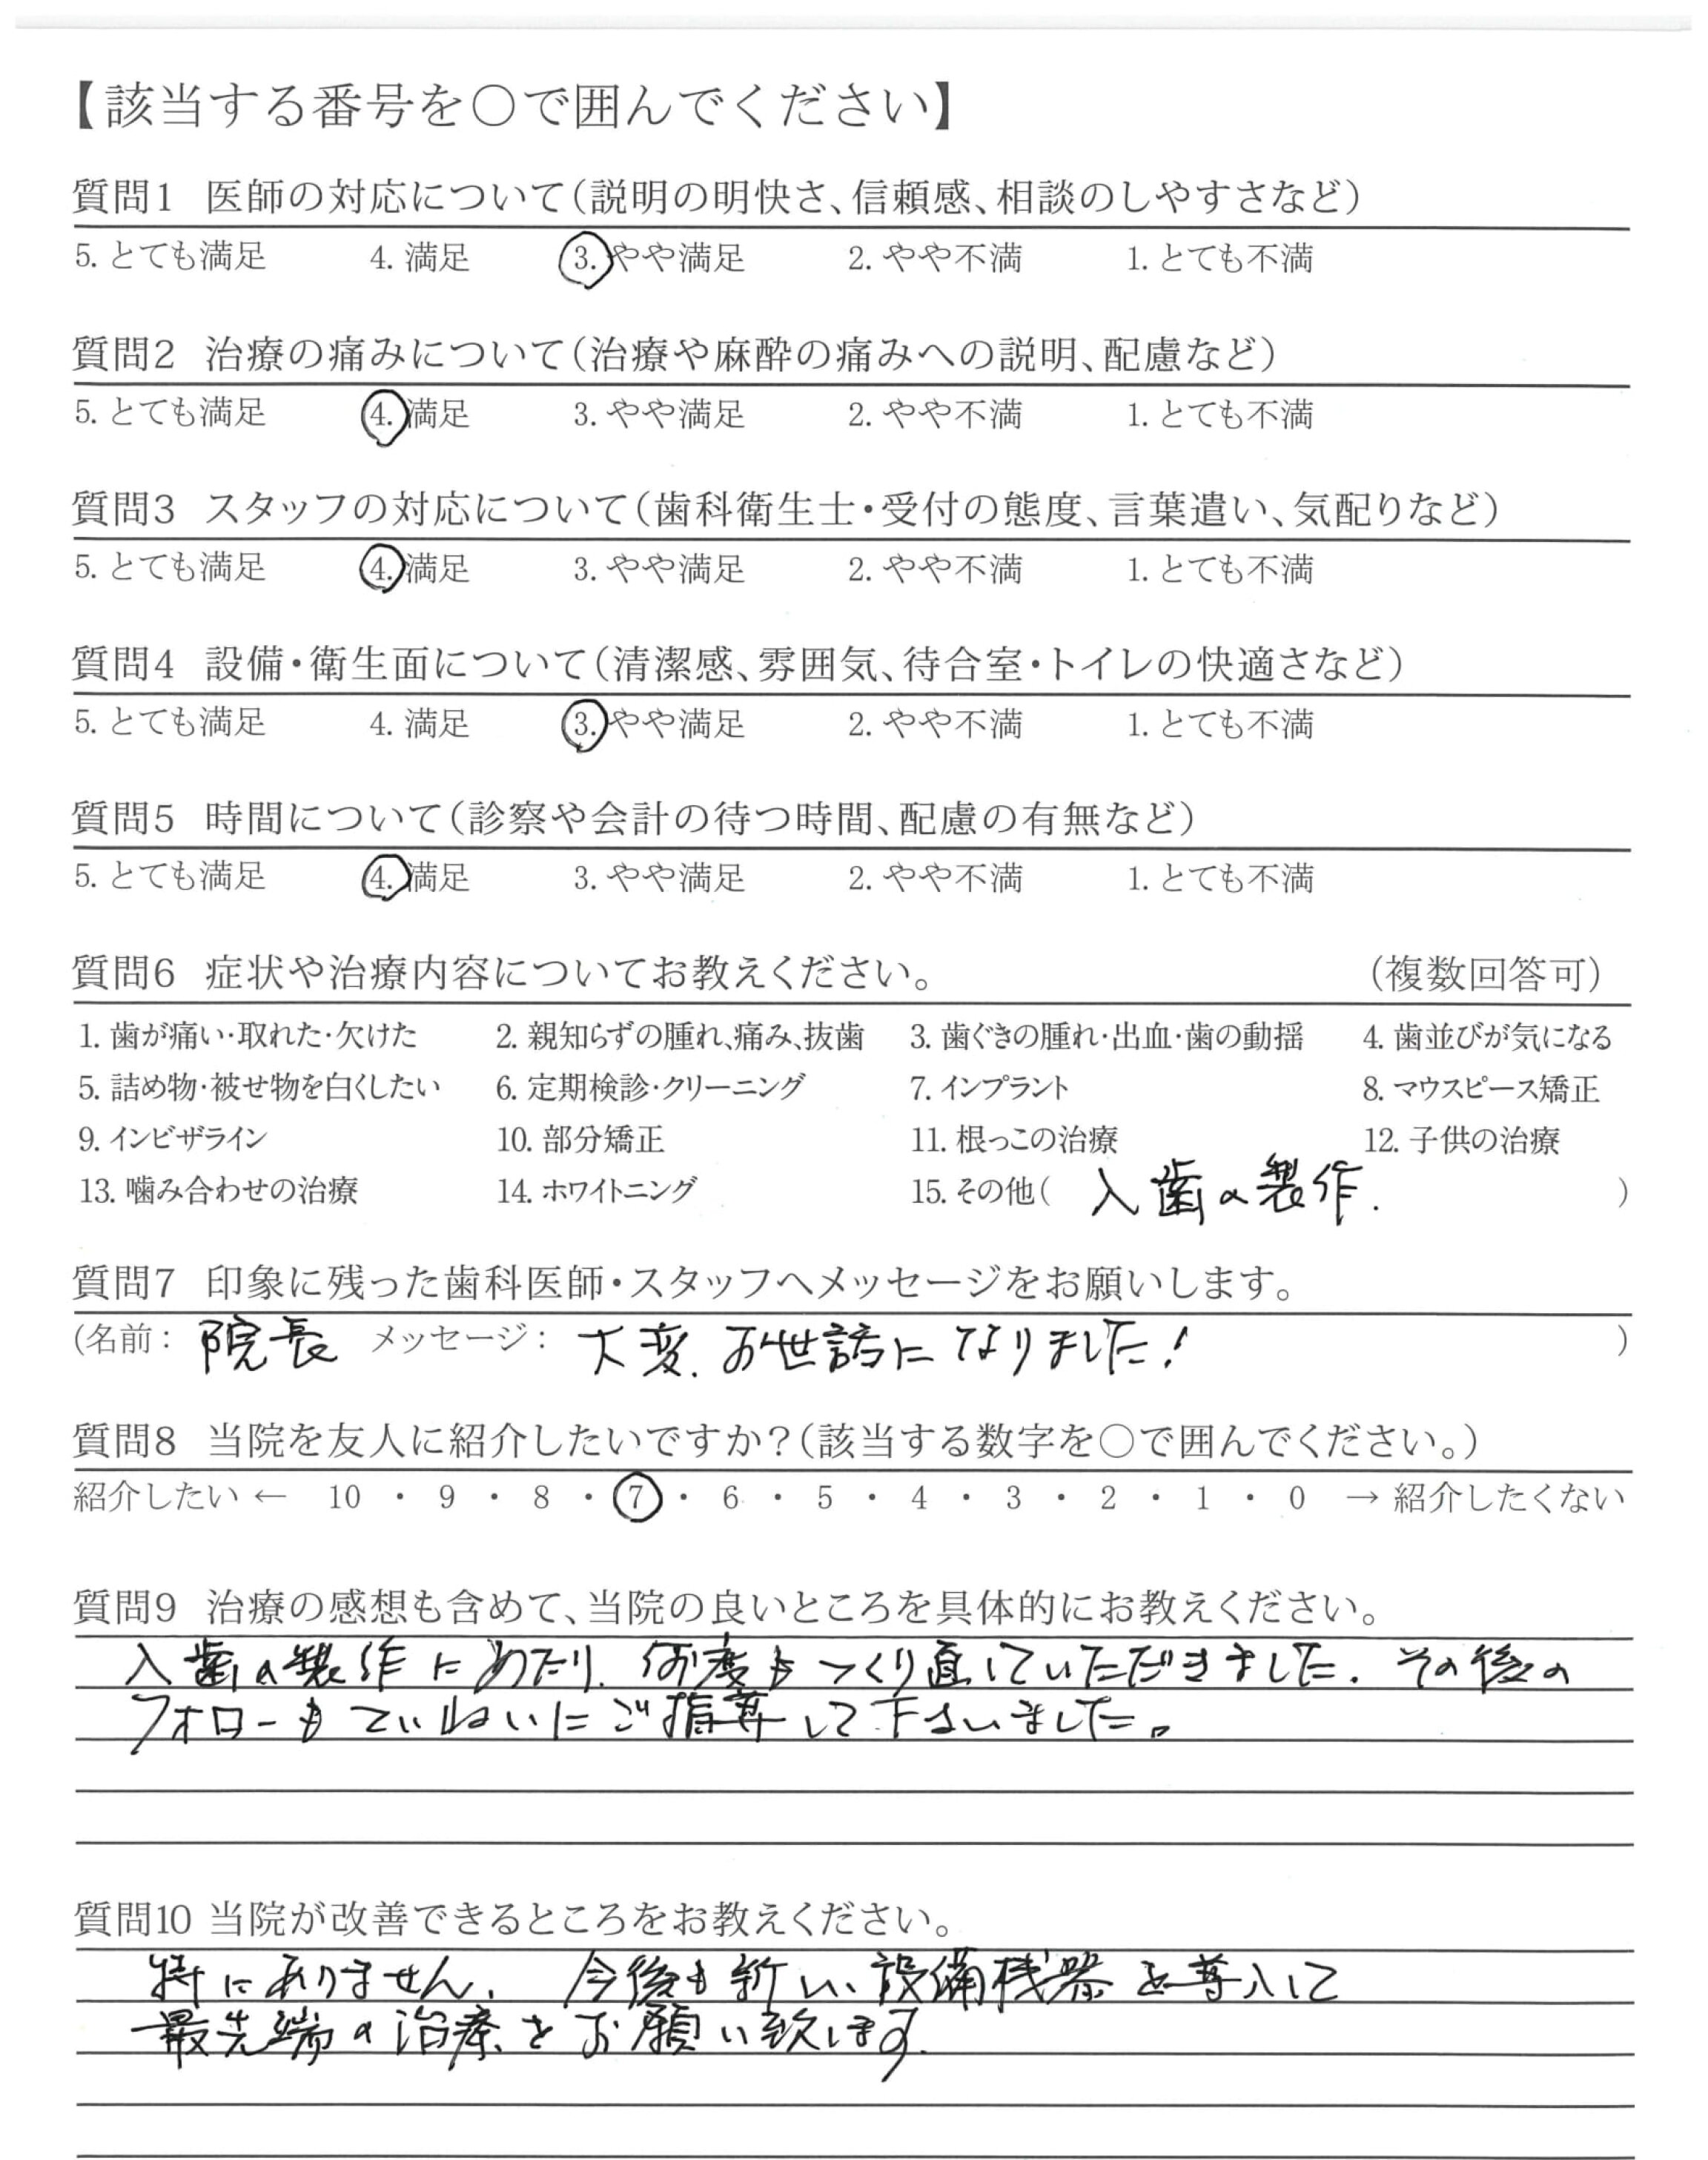 【該当する番号を○で囲んでください】
質問1 医師の対応について(説明の明快さ、信頼感、相談のしやすさなど)
5. とても満足 4. 満足 3. やや満足 2. やや不満 1. とても不満
質問2 治療の痛みについて(治療や麻酔の痛みへの説明、配慮など)
5. とても満足 4. 満足 3. やや満足 2. やや不満 1. とても不満
質問3 スタッフの対応について(歯科衛生士・受付の態度、言葉遣い、気配りなど)
5. とても満足 4. 満足 3. やや満足 2. やや不満 1. とても不満
質問4 設備・衛生面について(清潔感、雰囲気、待合室・トイレの快適さなど)
5. とても満足 4. 満足 3. やや満足 2. やや不満 1. とても不満
質問5 時間について(診察や会計の待つ時間、配慮の有無など)
5. とても満足 4. 満足 3. やや満足 2. やや不満 1. とても不満
質問6 症状や治療内容についてお教えください。 (複数回答可)
1. 歯が痛い・取れた・欠けた 2. 親知らずの腫れ、痛み、抜歯 3. 歯ぐきの腫れ・出血・歯の動揺 4. 歯並びが気になる
5. 詰め物・被せ物を白くしたい 6. 定期検診・クリーニング 7. インプラント 8. マウスピース矯正
9. インビザライン 10. 部分矯正 11. 根っこの治療 12. 子供の治療
13. 噛み合わせの治療 14. ホワイトニング 15. その他( 入歯の製作. )
質問7 印象に残った歯科医師・スタッフへメッセージをお願いします。
(名前: 院長 メッセージ: 大変.お世話になりました! )
質問8 当院を友人に紹介したいですか?(該当する数字を○で囲んでください。)
紹介したい ← 10 ・ 9 ・ 8 ・ 7 ・ 6 ・ 5 ・ 4 ・ 3 ・ 2 ・ 1 ・ 0 → 紹介したくない
質問9 治療の感想も含めて、当院の良いところを具体的にお教えください。
入歯の製作にあたり.何度もつくり直していただきました.その後の
フォローもていねいにご指導して下さいました。
質問10 当院が改善できるところをお教えください。
特にありません. 今後も新しい設備機器を導入して
最先端の治療をお願い致します.